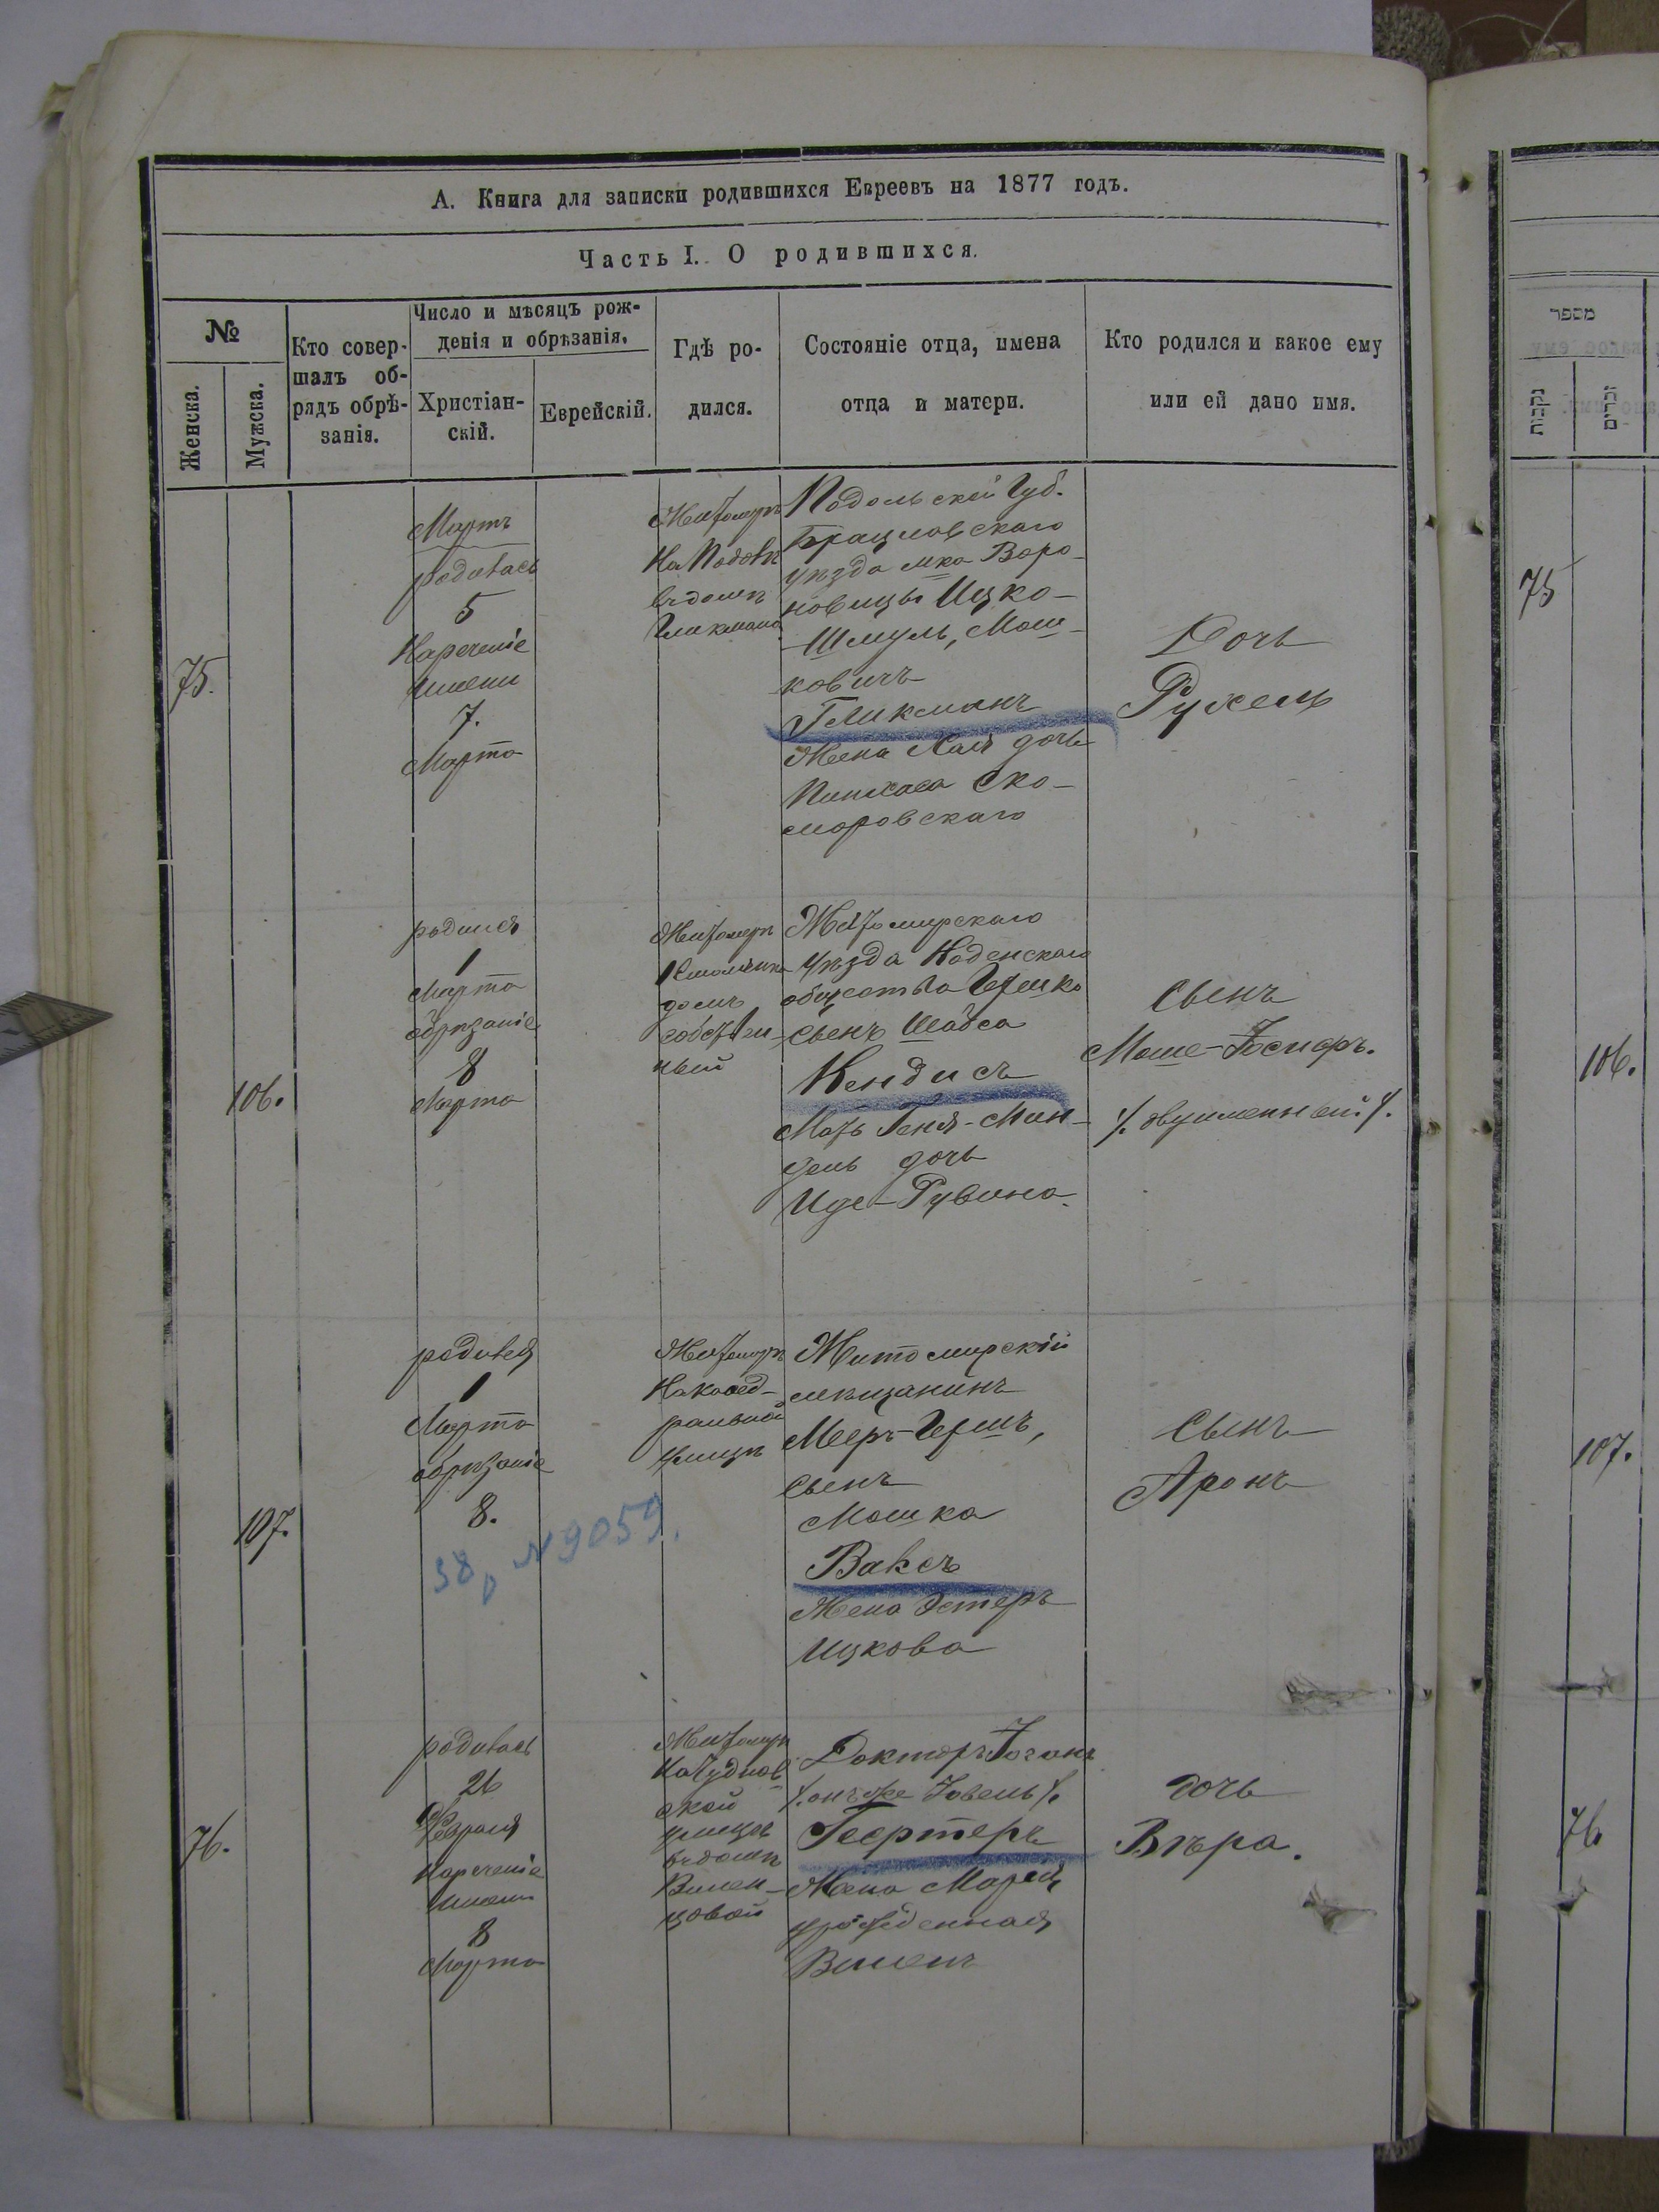 А. Книга для записки родившихся Евреевъ на 1877 годъ.
Часть I. О родившихся.
№
Женска.
Мужска.
Кто совер-
шалъ об-
рядъ обрѣ-
занія.
Число и мѣсяцъ рож-
денія и обрѣзанія.
Христіан-
скій.
Еврейскій.
Гдѣ ро-
дился.
Состояніе отца, имена
отца и матери.
Кто родился и какое ему
или ей дано имя.
75.
Мартъ
родилась
5
Нареченіе
имени
7.
Марта
Житомиръ
На Подолѣ
въ домѣ
Гликмана
Подольской Губ.
Брацлавскаго
уѣзда мка Воро-
новицы Ицко-
Шмуль, Мош-
ковичъ
Гликманъ
Жена Хая дочь
Пинхаса Ско-
моровскаго
Дочь
Рухель
106.
родился
1
Марта
обрѣзаніе
8
Марта
Житомиръ
домъ
собствен-
ный
Житомирскаго
Уѣзда Коденскаго
общества Гершко
сынъ Шабса
Кендисъ
Мать Геня-Мин-
дель дочь
Иде-Рувина.
Сынъ
Моше-Іосифъ.
/. двуименный /.
107.
родился
1
Марта
обрѣзаніе
8.
38, N 9059.
Житомиръ
На каѳед-
ральной
улицѣ
Житомирскій
мѣщанинъ
Мееръ-Гершъ,
сынъ
Мошка
Ваксъ
Жена Эстеръ
Ицкова
Сынъ
Аронъ
76.
родилась
26
Февраля
Нареченіе
имени
8
Марта
Житомиръ
На Чуднов-
ской
улицѣ
въ домѣ
Вилен-
цовой
Докторъ Іоганъ
/. онъ же Іовель /.
Геертеръ
Жена Марія
урожденная
Виленъ
дочь
Вѣра.
מספר
נקבות
זכרים
75
106.
107.
76